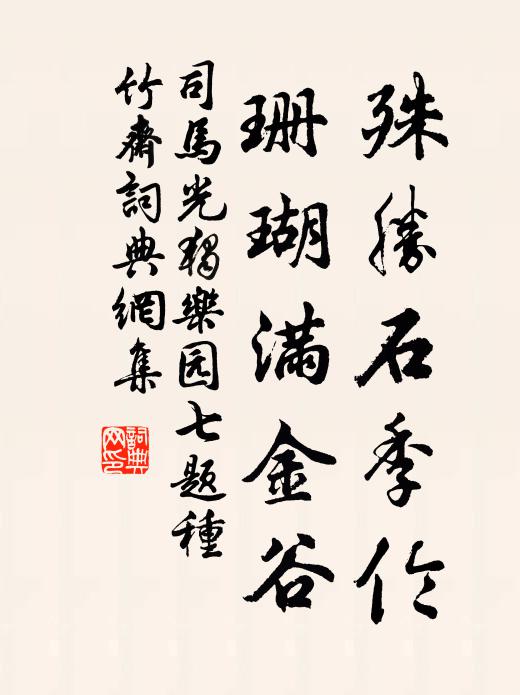 殊勝石季伦
珊瑚滿金谷
司馬光獨樂园七题種
竹齋詞典網集
詞典
网印